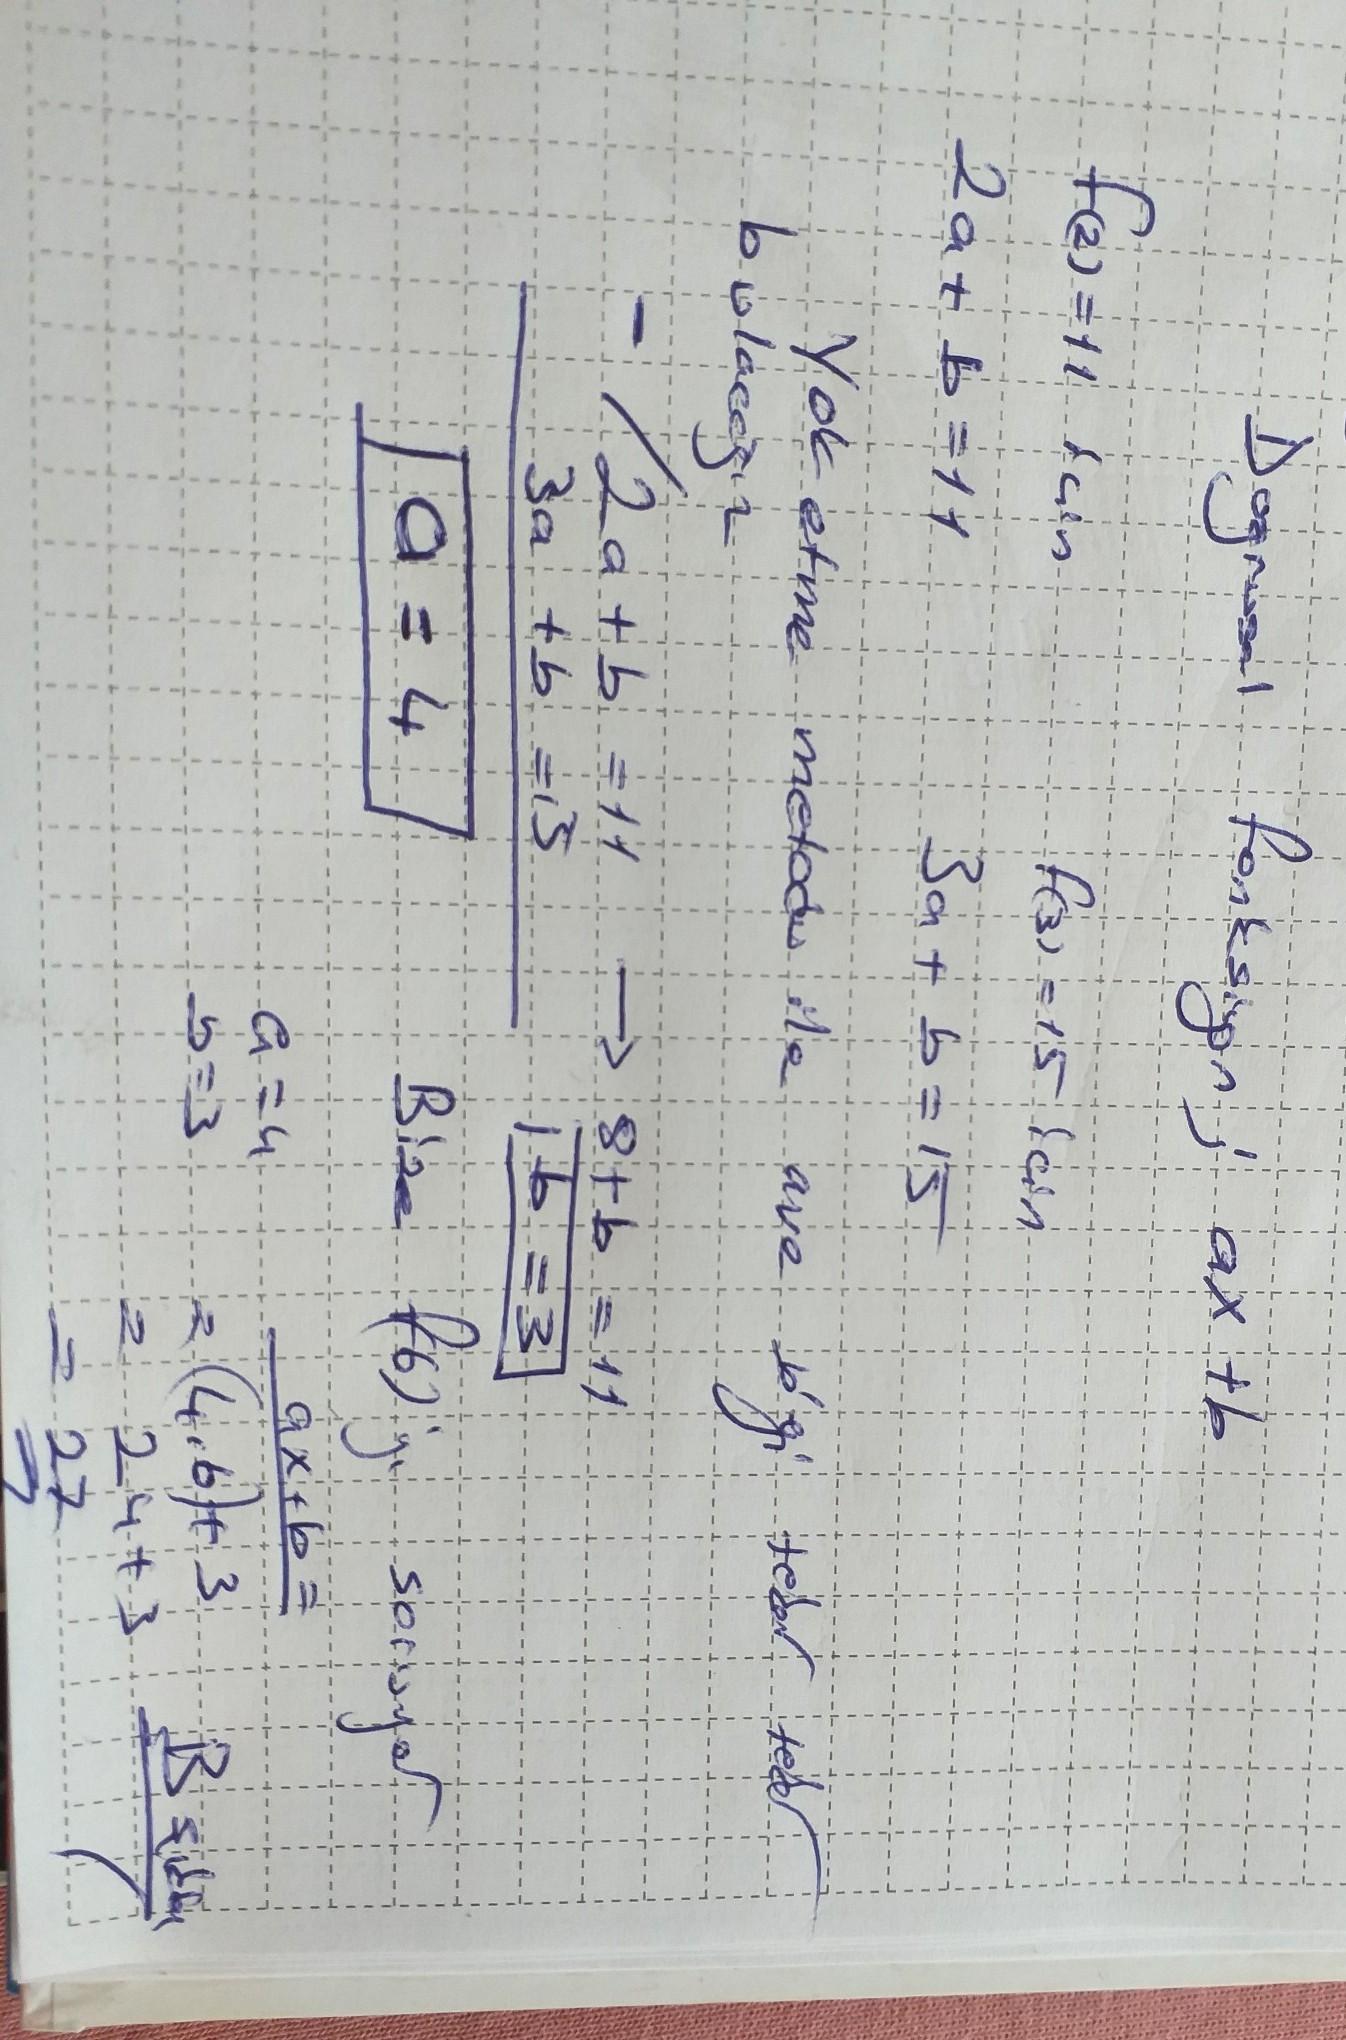 Dogrusal fonksiyon j ax + b
f(2) = 11 için f(3) = 15 için
2a + b = 11 3a + b = 15
Yok etme metodu ile ave b'yi tekar teker
bulacağız
- / 2a + b = 11 → 8 + b = 11
3a + b = 15 b = 3
a = 4 Bize f(6)'yı soruyor
a = 4 ax + b =
b = 3 = (4.6) + 3
= 24 + 3 B şıkkı
= 27